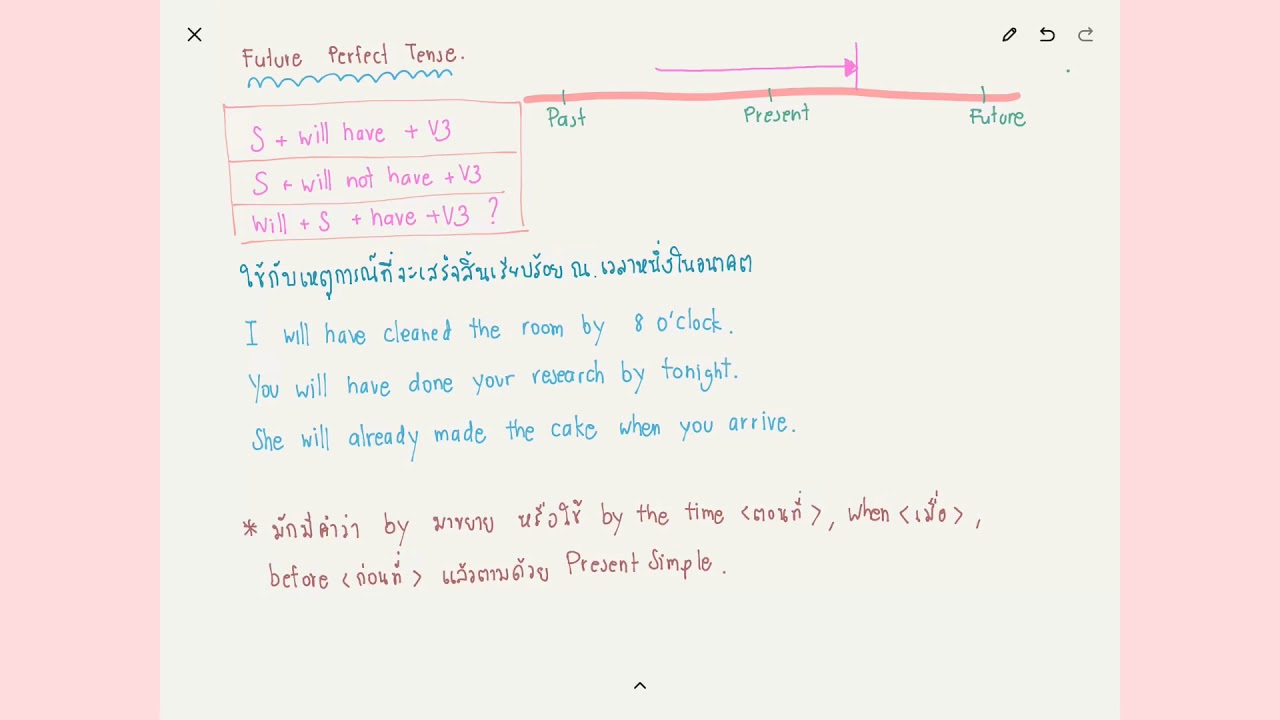 Future Perfect Tense.
S + will have + V3
S + will not have + V3
Will + S + have + V3 ?
Past Present Future
ใช้กับเหตุการณ์ที่จะเสร็จสิ้นเรียบร้อย ณ. เวลาหนึ่งในอนาคต
I will have cleaned the room by 8 o'clock.
You will have done your research by tonight.
She will already made the cake when you arrive.
* มักมีคำว่า by มาขยาย หรือใช้ by the time <ตอนที่>, when <เมื่อ>,
before <ก่อนที่> แล้วตามด้วย Present Simple.